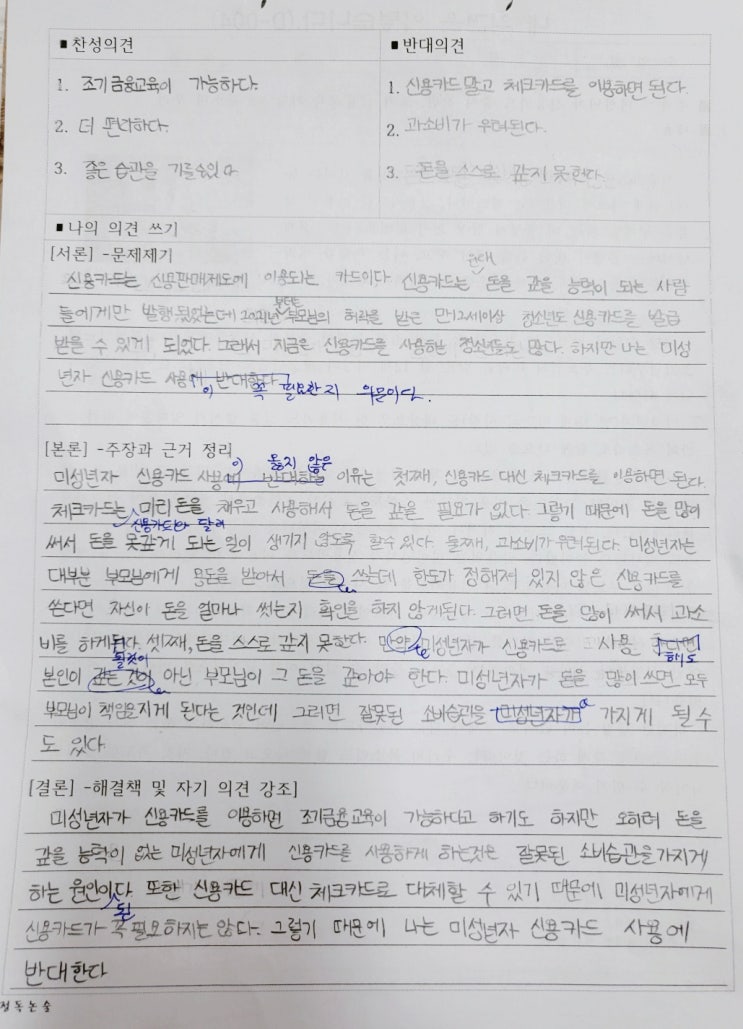 ■ 찬성의견
■ 반대의견
1. 조기금융교육이 가능하다.
2. 더 편리하다.
3. 좋은 습관을 기를수있다
1. 신용카드말고 체크카드를 이용하면 된다.
2. 과소비가 우려된다.
3. 돈을 스스로 갚지 못한다.
■ 나의 의견 쓰기
[서론] -문제제기
신용카드는 신용판매제도에 이용되는 카드이다. 신용카드는 원래 돈을 갚을 능력이 되는 사람
들에게만 발행됬었는데 2021년부터는 부모님의 허락을 받은 만12세이상 청소년도 신용카드를 발급
받을 수 있게 되었다. 그래서 지금은 신용카드를 사용하는 청소년들도 많다. 하지만 나는 미성
년자 신용카드 사용에 반대한다.
이 꼭 필요한지 의문이다.
[본론] -주장과 근거 정리
이 옳지 않은
미성년자 신용카드 사용에 반대하는 이유는 첫째, 신용카드 대신 체크카드를 이용하면 된다.
체크카드는 미리 돈을 채우고 사용해서 돈을 갚을 필요가 없다. 그렇기 때문에 돈을 많이
신용카드와 달리
써서 돈을 못갚게 되는 일이 생기지 않도록 할수 있다. 둘째, 과소비가 우려된다. 미성년자는
대부분 부모님에게 용돈을 받아서 돈을 쓰는데 한도가 정해져 있지 않은 신용카드를
쓴다면 자신이 돈을 얼마나 썼는지 확인을 하지 않게된다. 그러면 돈을 많이 써서 과소
비를 하게된다. 셋째, 돈을 스스로 갚지 못한다. 만약 미성년자가 신용카드로 사용 한다면
해도
본인이 갚는 것이 아닌 부모님이 그 돈을 갚아야 한다. 미성년자가 돈을 많이 쓰면 모두
부모님이 책임을지게 된다는 것인데 그러면 잘못된 소비습관을 미성년자가 가지게 될수
도 있다.
[결론] -해결책 및 자기 의견 강조]
미성년자가 신용카드를 이용하면 조기금융교육이 가능하다고 하기도 하지만 오히려 돈을
갚을 능력이 없는 미성년자에게 신용카드를 사용하게 하는것은 잘못된 소비습관을가지게
하는 원인이다. 또한 신용카드 대신 체크카드로 대체할 수 있기 때문에 미성년자에게
된
신용카드가 꼭 필요하지는 않다. 그렇기 때문에 나는 미성년자 신용카드 사용에
반대한다
정동논술